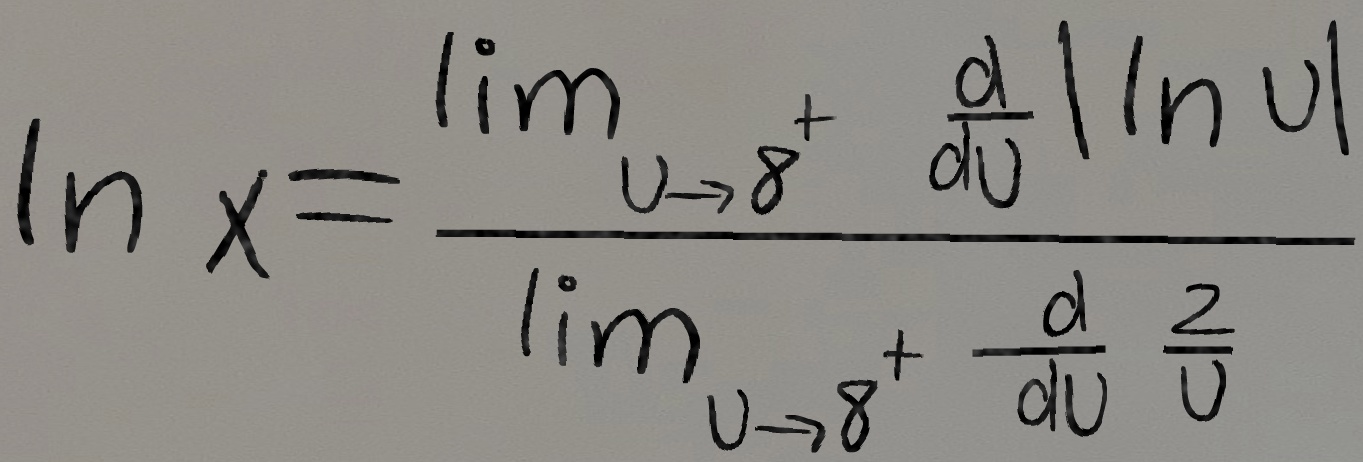 ln x = \frac{\lim_{U \to 8^+} \frac{d}{dU} | \ln U |}{\lim_{U \to 8^+} \frac{d}{dU} \frac{2}{U}}